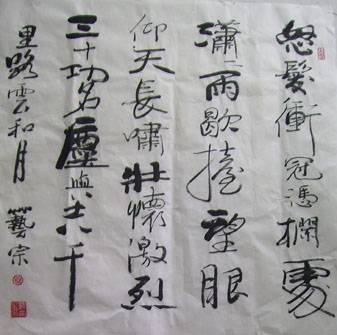 怒髮衝冠馮欄處
瀟〻雨歇擡望眼
仰天長嘯壯懷激烈
三十功名塵與土八千
里路雲和月
藝宗